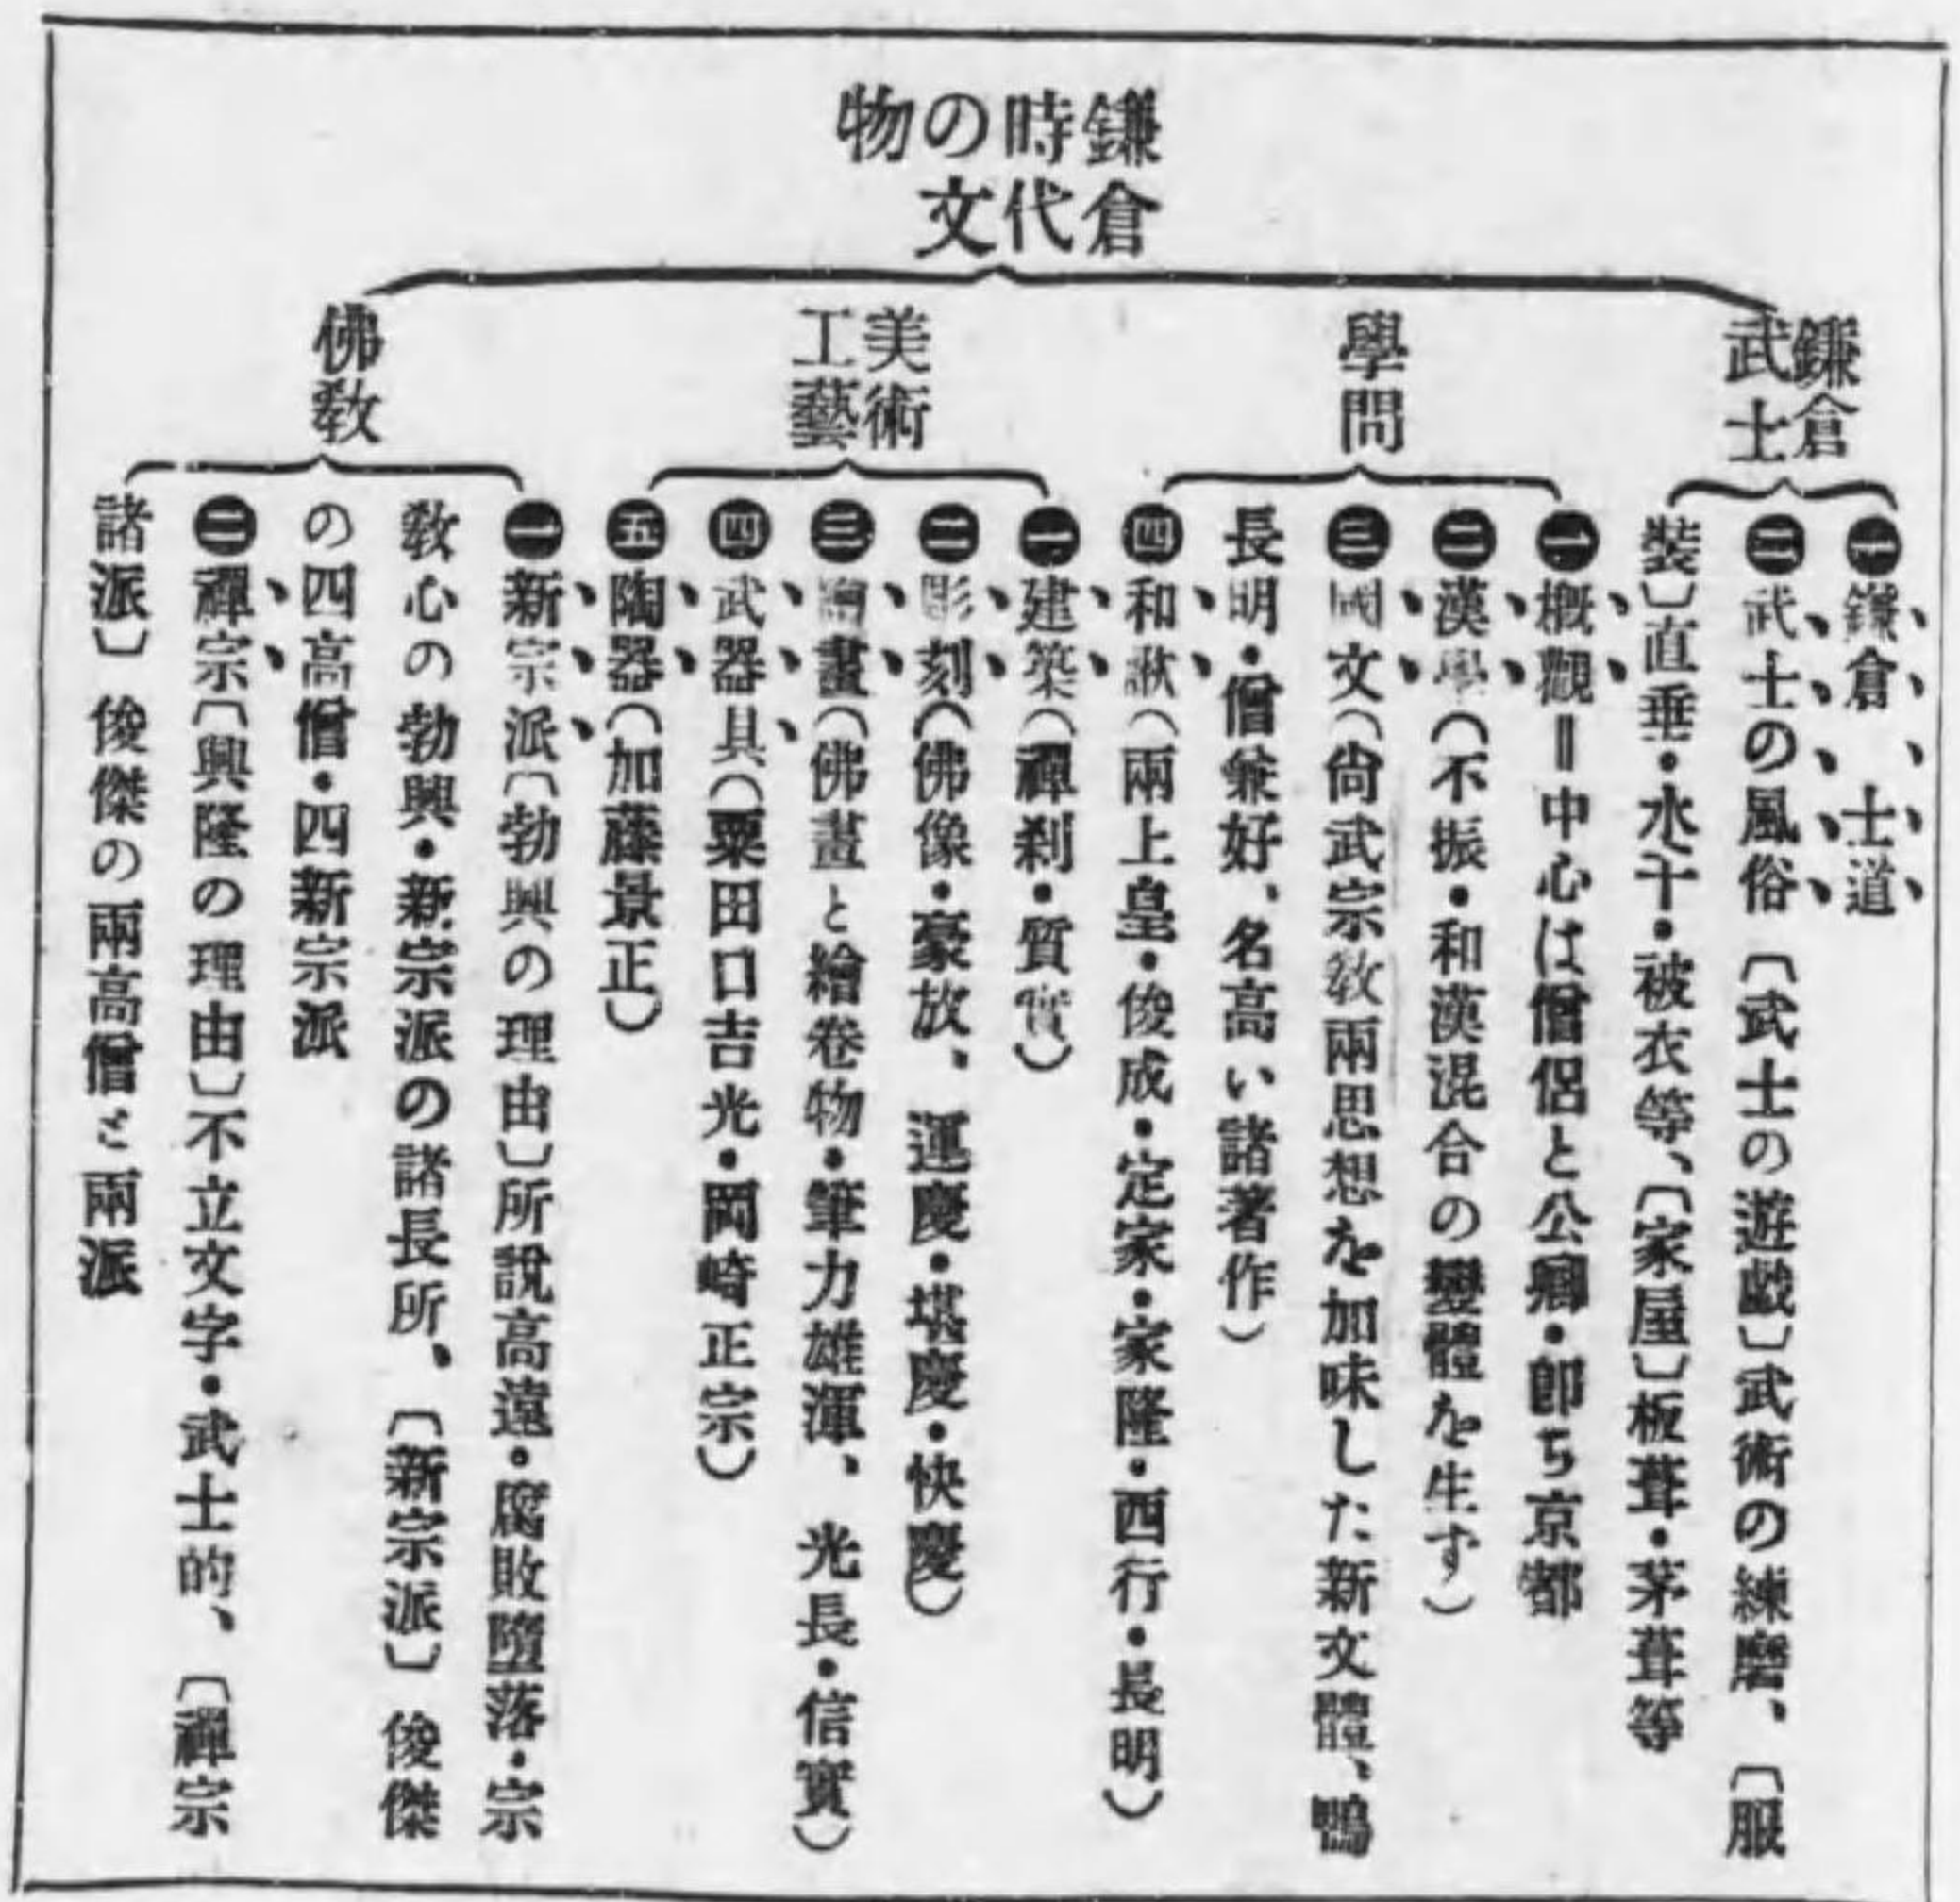 鎌倉
時代
の文
物
鎌倉
武士
㊀鎌倉 士道
㊁武士の風俗〔武士の遊戯〕武術の練磨、〔服
裝〕直垂・水干・被衣等、〔家屋〕板葺・茅葺等
學問
㊀概觀＝中心は僧侶と公卿・卽ち京都
㊁漢學（不振・和漢混合の變體を生す）
㊂國文（尙武宗敎兩思想を加味した新文體、鴨
長明・僧兼好、名高い諸著作）
㊃和歌（兩上皇・俊成・定家・家隆・西行・長明）
美術
工藝
㊀建築（禪刹・質實）
㊁彫刻（佛像・豪放、運慶・堪慶・快慶）
㊂繪畫（佛畫と繪卷物・筆力雄渾、光長・信實）
㊃武器具（粟田口吉光・岡崎正宗）
㊄陶器（加藤景正）
佛敎
㊀新宗派〔勃興の理由〕所說高遠・腐敗墮落・宗
敎心の勃興・新宗派の諸長所、〔新宗派〕俊傑
の四高僧・四新宗派
㊁禪宗〔興隆の理由〕不立文字・武士的、〔禪宗
諸派〕俊傑の兩高僧と兩派